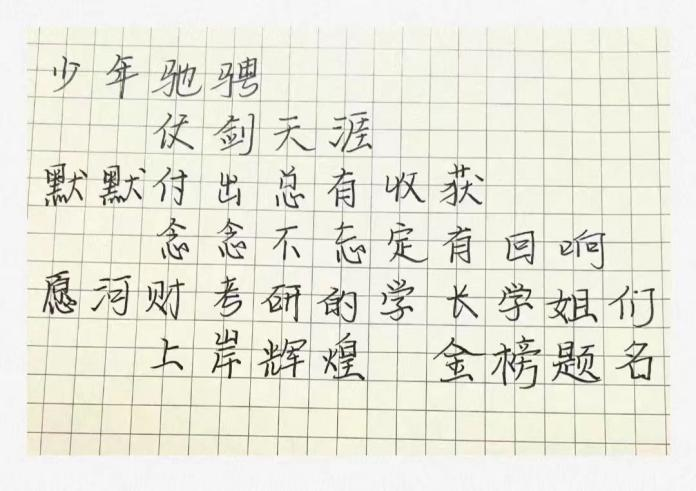 少年驰骋
仗剑天涯
默默付出总有收获
念念不忘定有回响
愿河财考研的学长学姐们
上岸辉煌 金榜题名